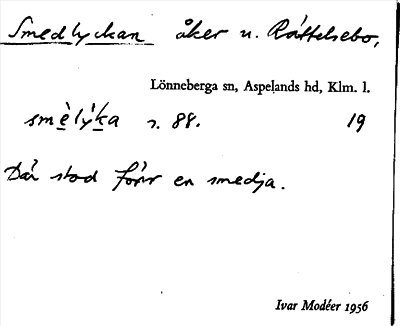 Smedlyckan åker u. Råttelsebo,
Lönneberga sn, Aspelands hd, Klm. l.
smè̲lýk̲a s. 88. 19
Där stod förr en smedja.
Ivar Modéer 1956